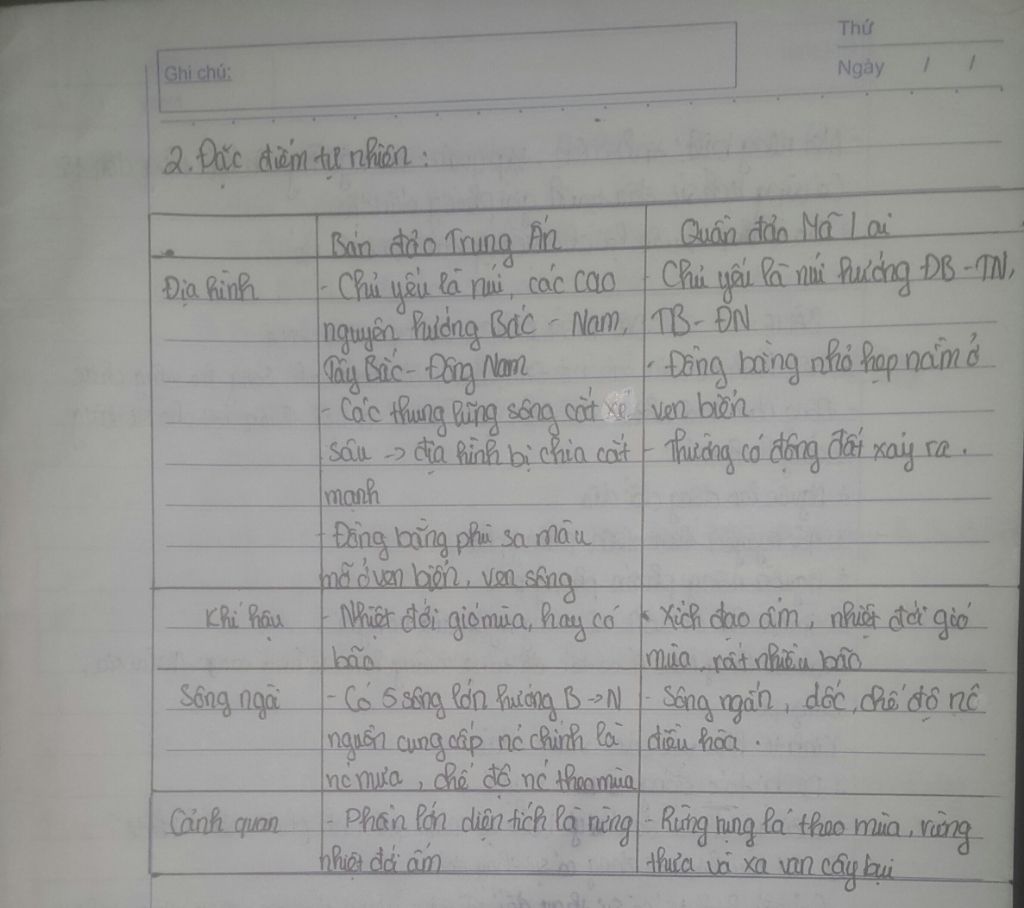 Thứ
Ghi chú:
Ngày / /
2. Đặc điểm tự nhiên:
Bán đảo Trung Ấn
Quần đảo Mã Lai
Địa hình
- Chủ yếu là núi, các cao
nguyên hướng Bắc - Nam,
Tây Bắc - Đông Nam
- Các thung lũng sông cắt xẻ
sâu -> địa hình bị chia cắt
mạnh
- Đồng bằng phù sa màu
mỡ ở ven biển, ven sông
- Chủ yếu là núi hướng ĐB - TN,
TB - ĐN
- Đồng bằng nhỏ hẹp nằm ở
ven biển
- Thường có động đất xảy ra.
Khí hậu
- Nhiệt đới gió mùa, hay có
bão
- Xích đạo ẩm, nhiệt đới gió
mùa, rất nhiều bão
Sông ngòi
- Có 5 sông lớn hướng B -> N
nguồn cung cấp nc chính là
nc mưa, chế độ nc theo mùa
- Sông ngắn, dốc, chế độ nc
điều hòa.
Cảnh quan
- Phần lớn diện tích là rừng
nhiệt đới ẩm
- Rừng rụng lá theo mùa, rừng
thưa và xa van cây bụi